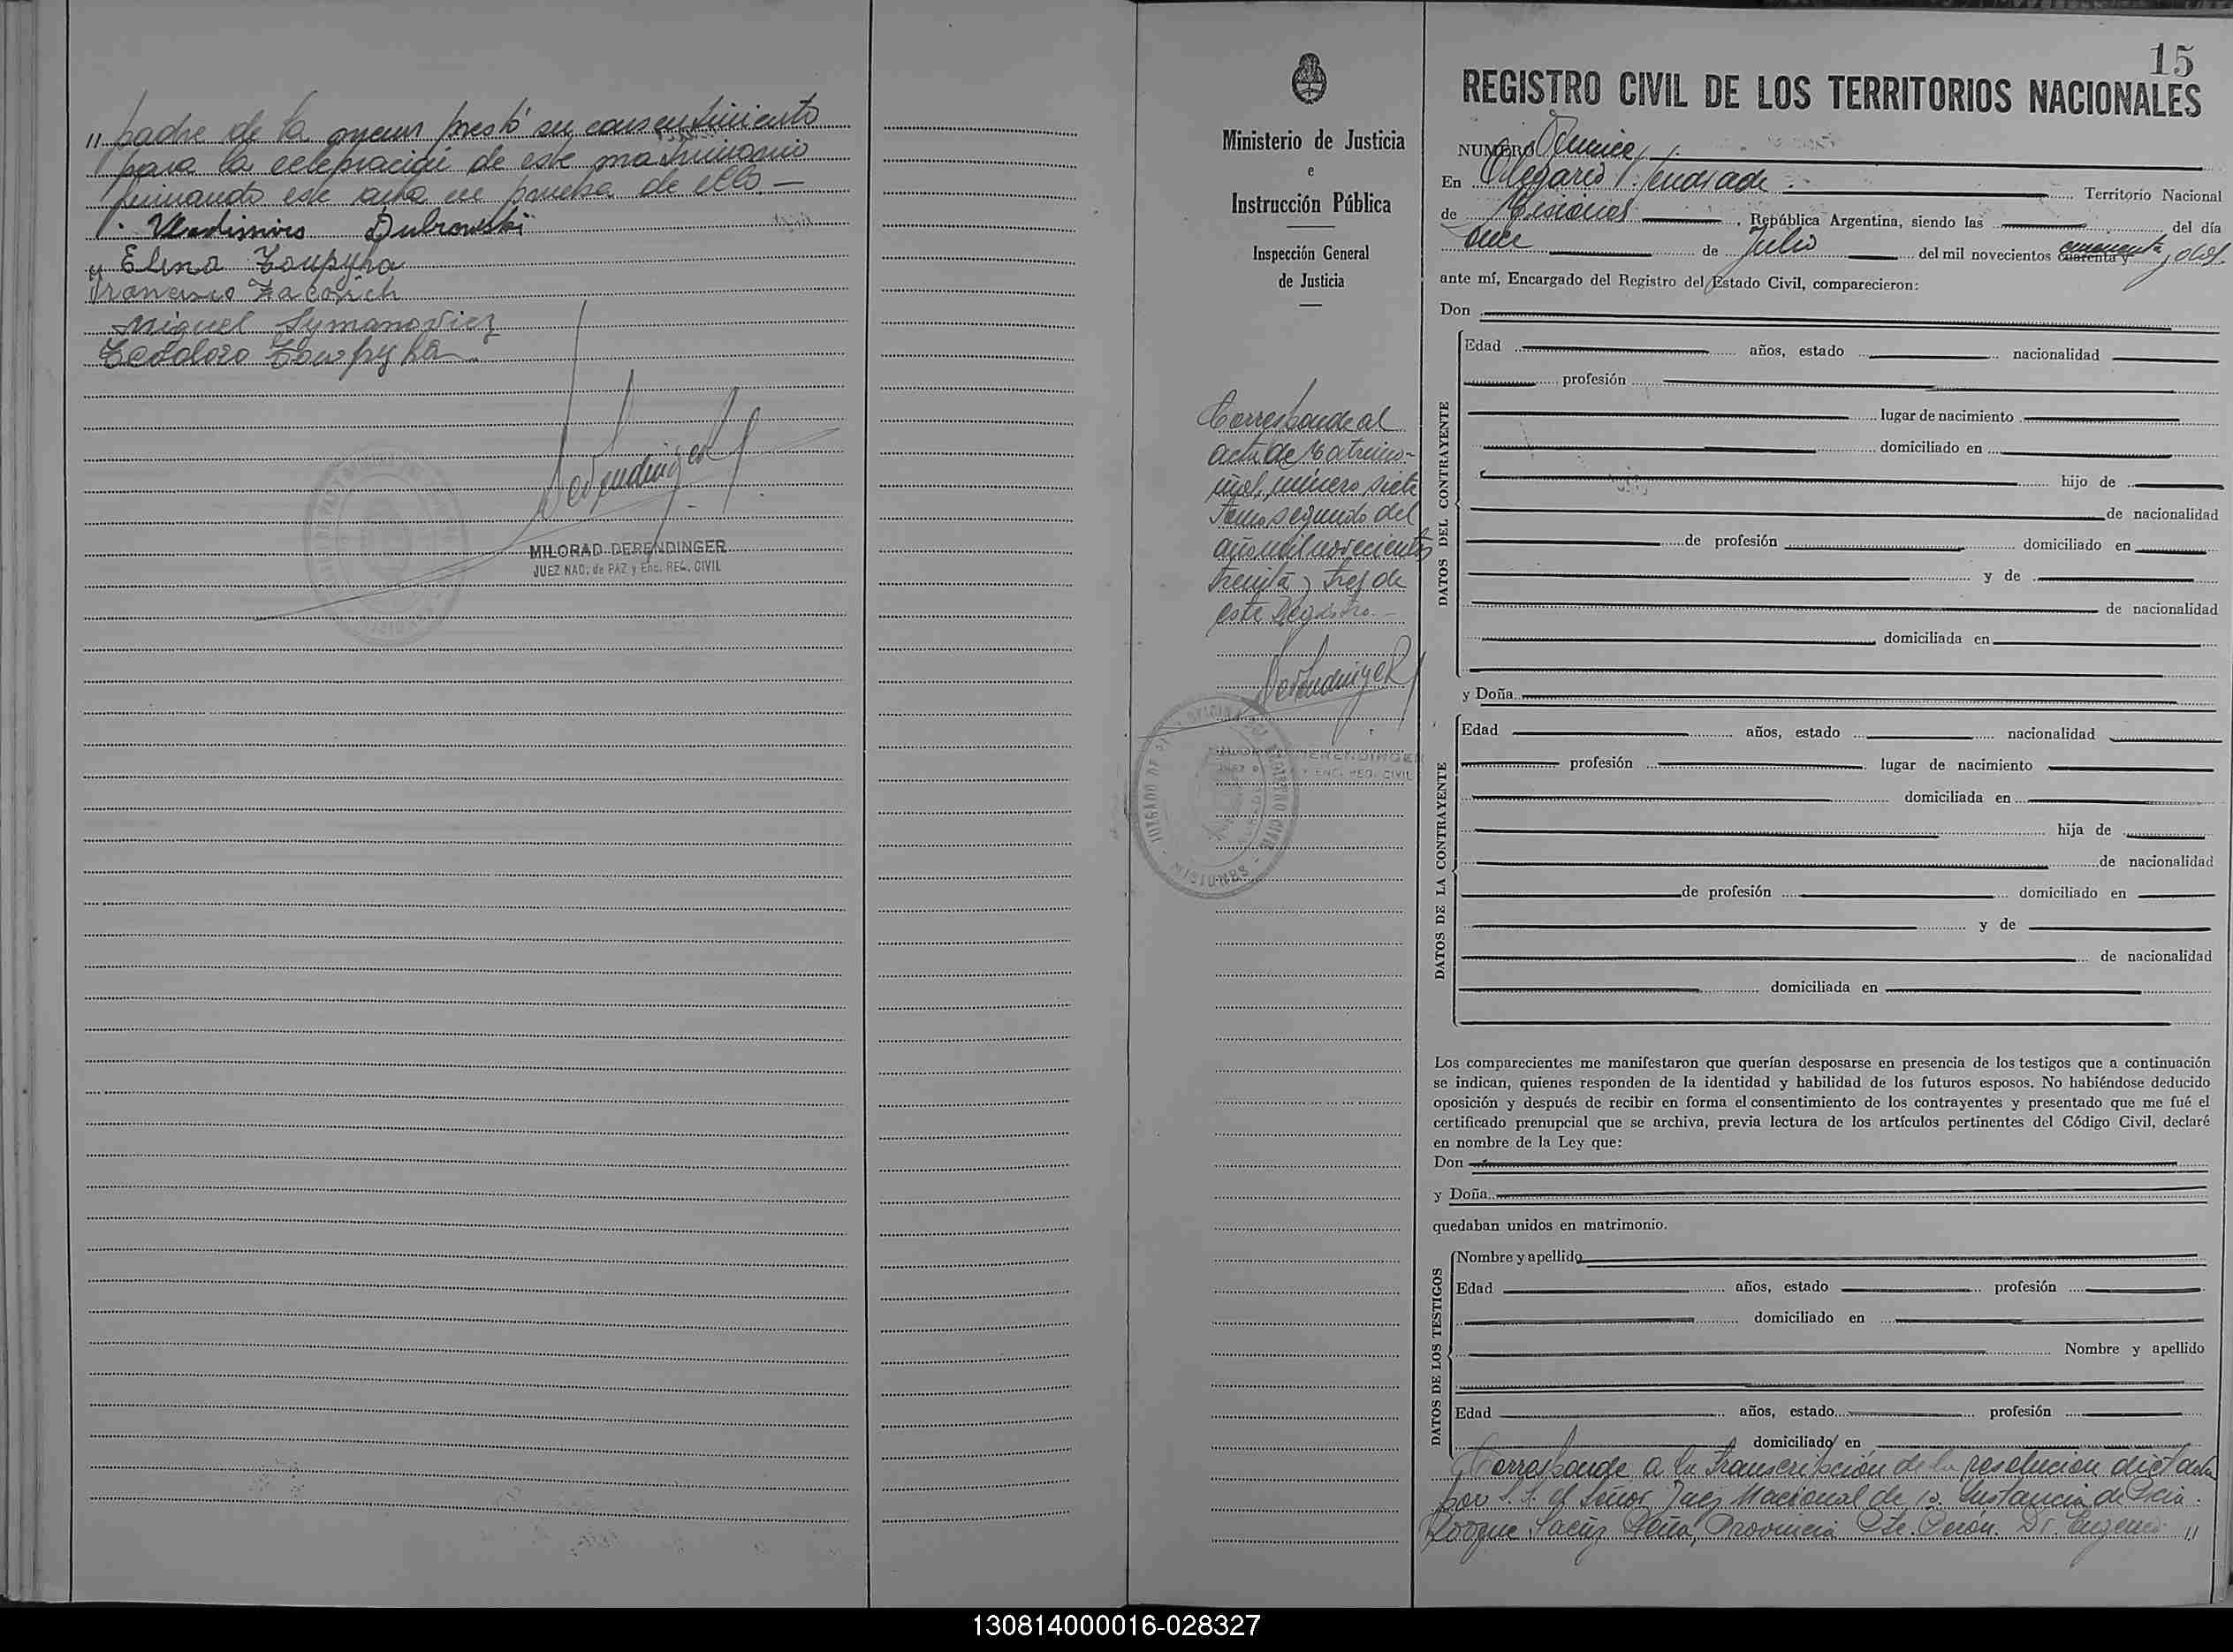 " padre de la menor prestó su consentimiento
para la celebración de este matrimonio
firmando este acta en prueba de ello. —
Vladimiro Dubrowski
Elena
Francisco Zacovich
Miguel Symanowicz
Teodoro
Derendinger
MILORAD DERENDINGER
JUEZ NAC. de PAZ y Enc. REG. CIVIL
Ministerio de Justicia
e
Instrucción Pública
Inspección General
de Justicia
Corresponde al
acta de Matrimo-
nial, número siete
Tomo segundo del
año mil novecientos
treinta y tres de
este Registro.—
Derendinger
DERENDINGER
Y ENC. REG. CIVIL
JUZGADO DE PAZ
MISIONES
15
REGISTRO CIVIL DE LOS TERRITORIOS NACIONALES
NUMERO Quince
En Olegario V. Andrade. Territorio Nacional
de Misiones, República Argentina, siendo las del día
once de Julio del mil novecientos cuarenta y cincuenta y dos.
ante mí, Encargado del Registro del Estado Civil, comparecieron:
Don
DATOS DEL CONTRAYENTE
Edad años, estado nacionalidad
profesión
lugar de nacimiento
domiciliado en
hijo de
de nacionalidad
de profesión domiciliado en
y de
de nacionalidad
domiciliada en
y Doña
DATOS DE LA CONTRAYENTE
Edad años, estado nacionalidad
profesión lugar de nacimiento
domiciliada en
hija de
de nacionalidad
de profesión domiciliado en
y de
de nacionalidad
domiciliada en
Los comparecientes me manifestaron que querían desposarse en presencia de los testigos que a continuación
se indican, quienes responden de la identidad y habilidad de los futuros esposos. No habiéndose deducido
oposición y después de recibir en forma el consentimiento de los contrayentes y presentado que me fué el
certificado prenupcial que se archiva, previa lectura de los artículos pertinentes del Código Civil, declaré
en nombre de la Ley que:
Don
y Doña
quedaban unidos en matrimonio.
DATOS DE LOS TESTIGOS
Nombre y apellido
Edad años, estado profesión
domiciliado en
Nombre y apellido
Edad años, estado profesión
domiciliado en
Corresponde a la transcripción de la resolución dictada
por S. S. el Señor Juez Nacional de 1a. Instancia de Pcia.
Rooque Saenz Peña, Provincia Pte. Perón. Dr. Eugenio "
130814000016-028327